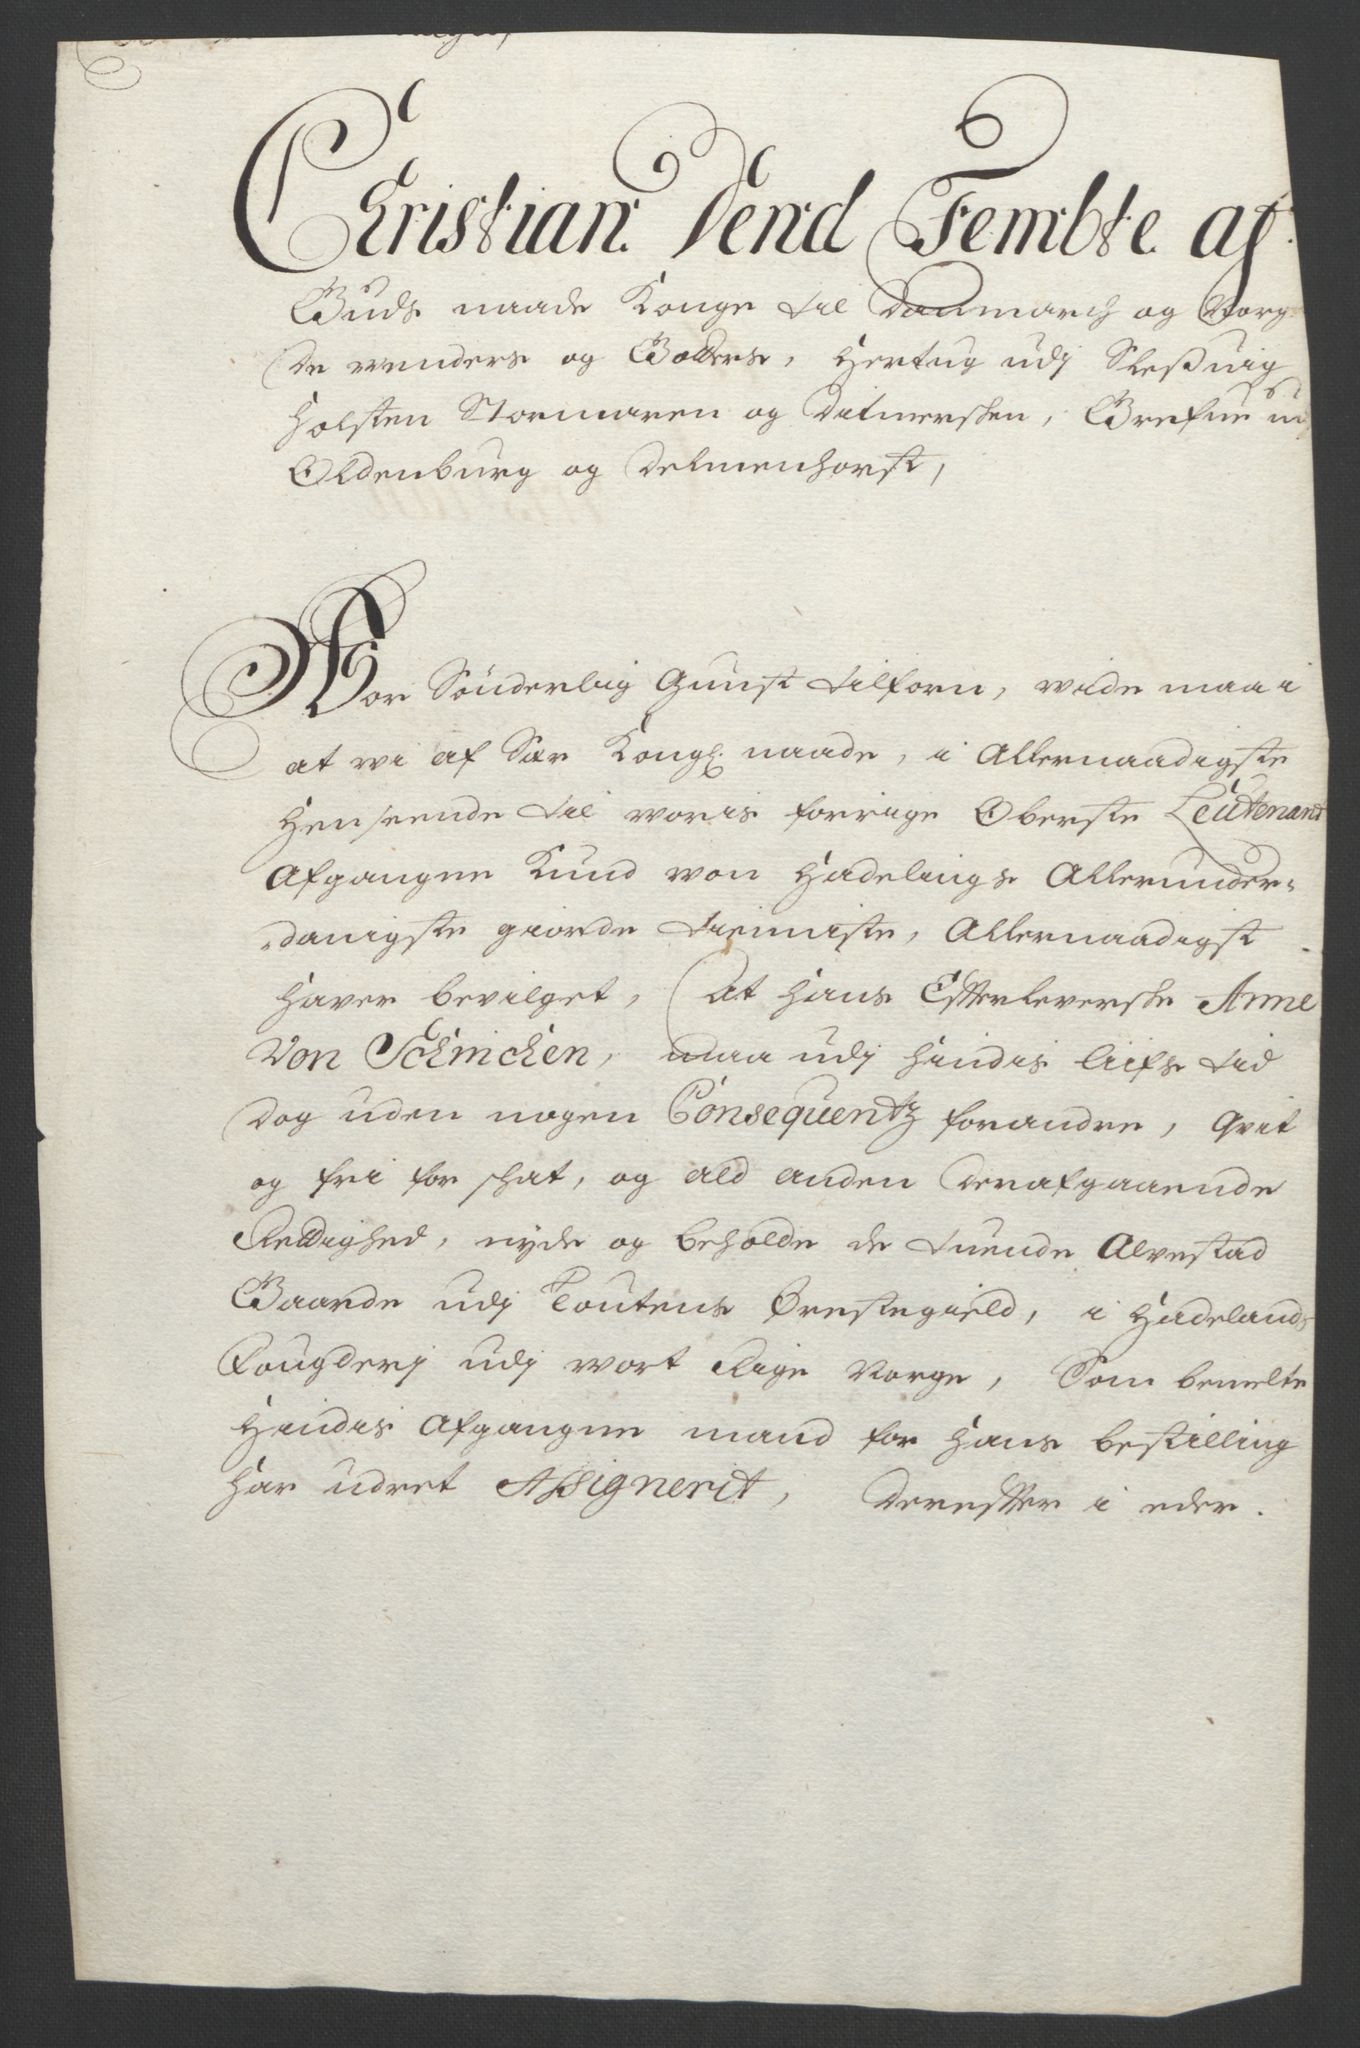 Christian Dend Fembte af
Guds naade Konge til Danmarch og Norg
de wenders og Gotters, Hertug udj Sleßuig
Holsten Stormaren og Ditmersken, Grefue ud
Oldenburg og Delmenhorst,
Vor Sönderlig Gunst tilforn, vide maa i
at wi af Sær Kongl. naade, i Allernaadigste
Henseende til woris forrige Oberste Leutenant
Afgangne Knud von Hadelings Allerunder-
danigste giorde tieniste, Allernaadigst
haver bevilget, At hans Effterleverske Anne
Von Schinchen, maa udj hindis liifs tid
dog uden nogen Consequentz forandre, qvit
og fri for skat, og ald anden deraf gaaende
Rettighed, nyde og beholde de tuende Alvestad
Gaarde udj Toutens Prestegield, i Hadelands
Fougderj udj wort Rige Norge, Som bemelte
Hindis Afgangne mand for hans bestilling
har udret Assignerit, Dereffter i eder.